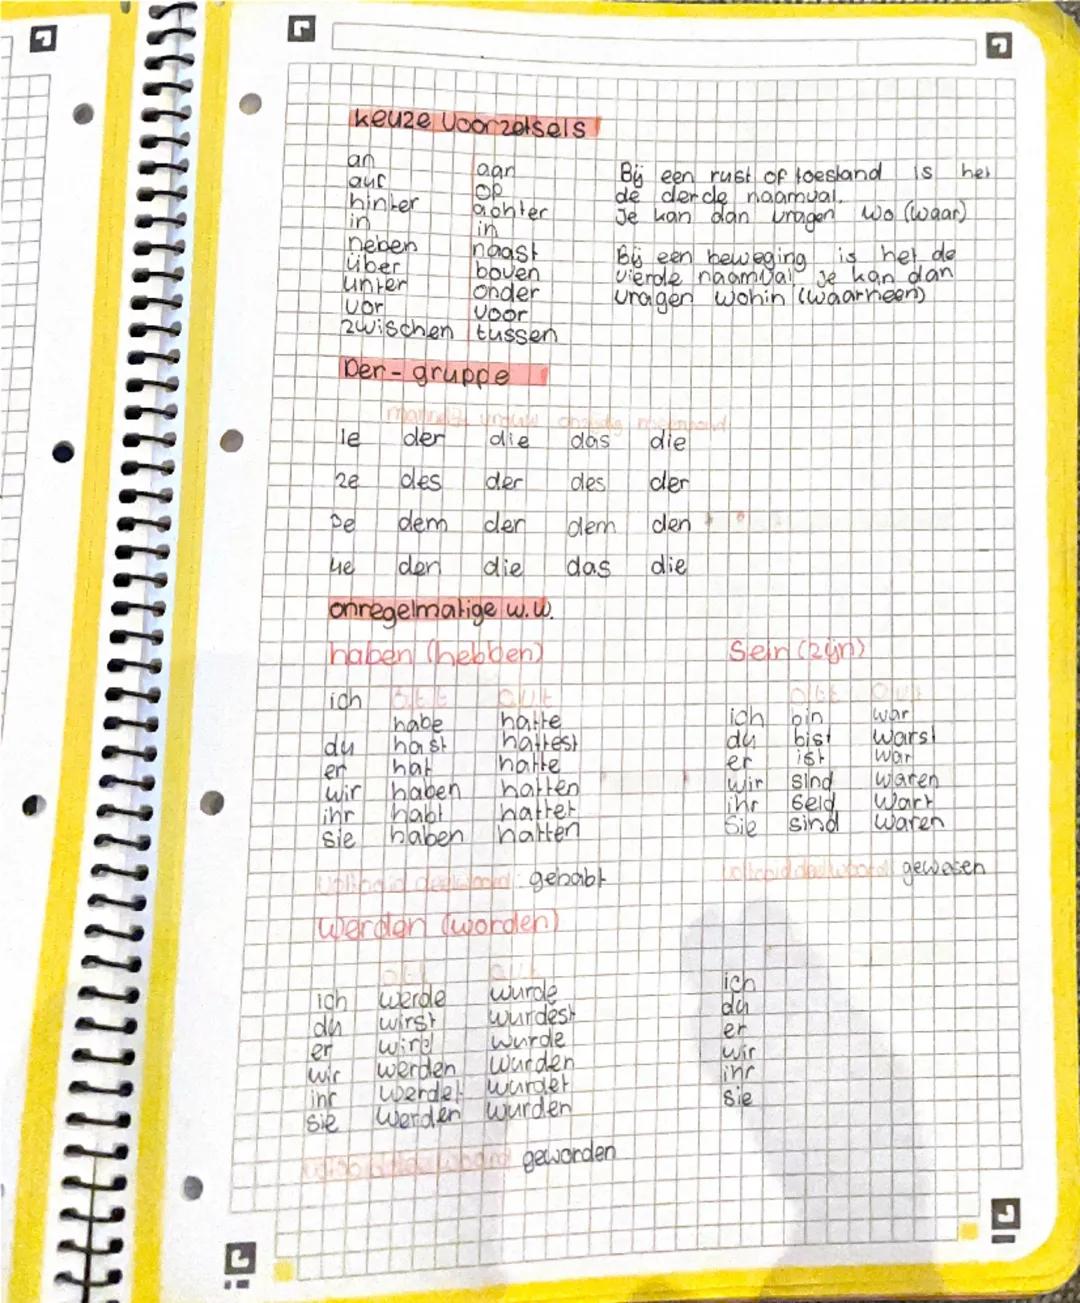 keuze voorzetsels
an aan
auf op
hinter achter
in in
neben naast
über boven
unter onder
vor voor
zwischen tussen
Bij een rust of toestand is het
de derde naamval.
Je kan dan vragen wo (waar)
Bij een beweging is het de
vierde naamval je kan dan
vragen wohin (waarheen)
Der-gruppe
mannelijk vrouw onzijdig meervoud
1e der die das die
2e des der des der
3e dem der dem den
4e den die das die
onregelmatige w.w.
haben (hebben)
ich o.t.t o.v.t
habe hatte
du hast hattest
er hat hatte
wir haben hatten
ihr habt hattet
sie haben hatten
voltooid deelwoord: gehabt
Sein (zijn)
ott ovt
ich bin war
du bist warst
er ist war
wir sind waren
ihr seid wart
Sie sind waren
voltooid deelwoord gewesen
Werden (worden)
ott ovt
ich werde wurde
du wirst wurdest
er wird wurde
wir werden wurden
ihr werdet wurdet
sie werden wurden
voltooid deelwoord geworden
ich
du
er
wir
ihr
sie